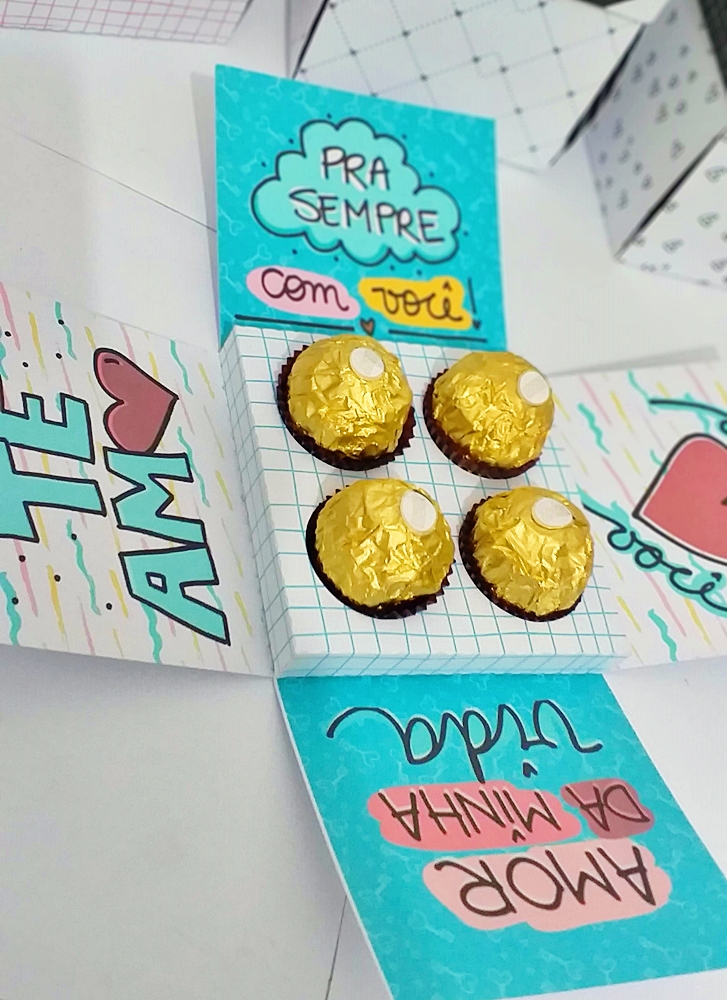 PRA
SEMPRE
com você!
TE
AM
AMOR
DA MINHA
vida
você